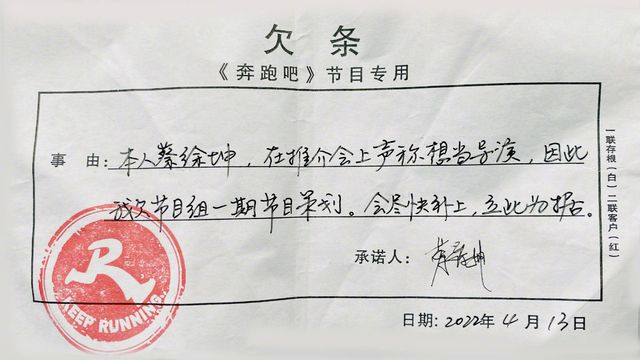 欠条
《奔跑吧》节目专用
事由：本人蔡徐坤，在推介会上声称想当导演，因此
我欠节目组一期节目策划。会尽快补上，立此为据。
承诺人：
日期：2022年4月13日
一联存根（白）二联客户（红）
R
KEEP RUNNING